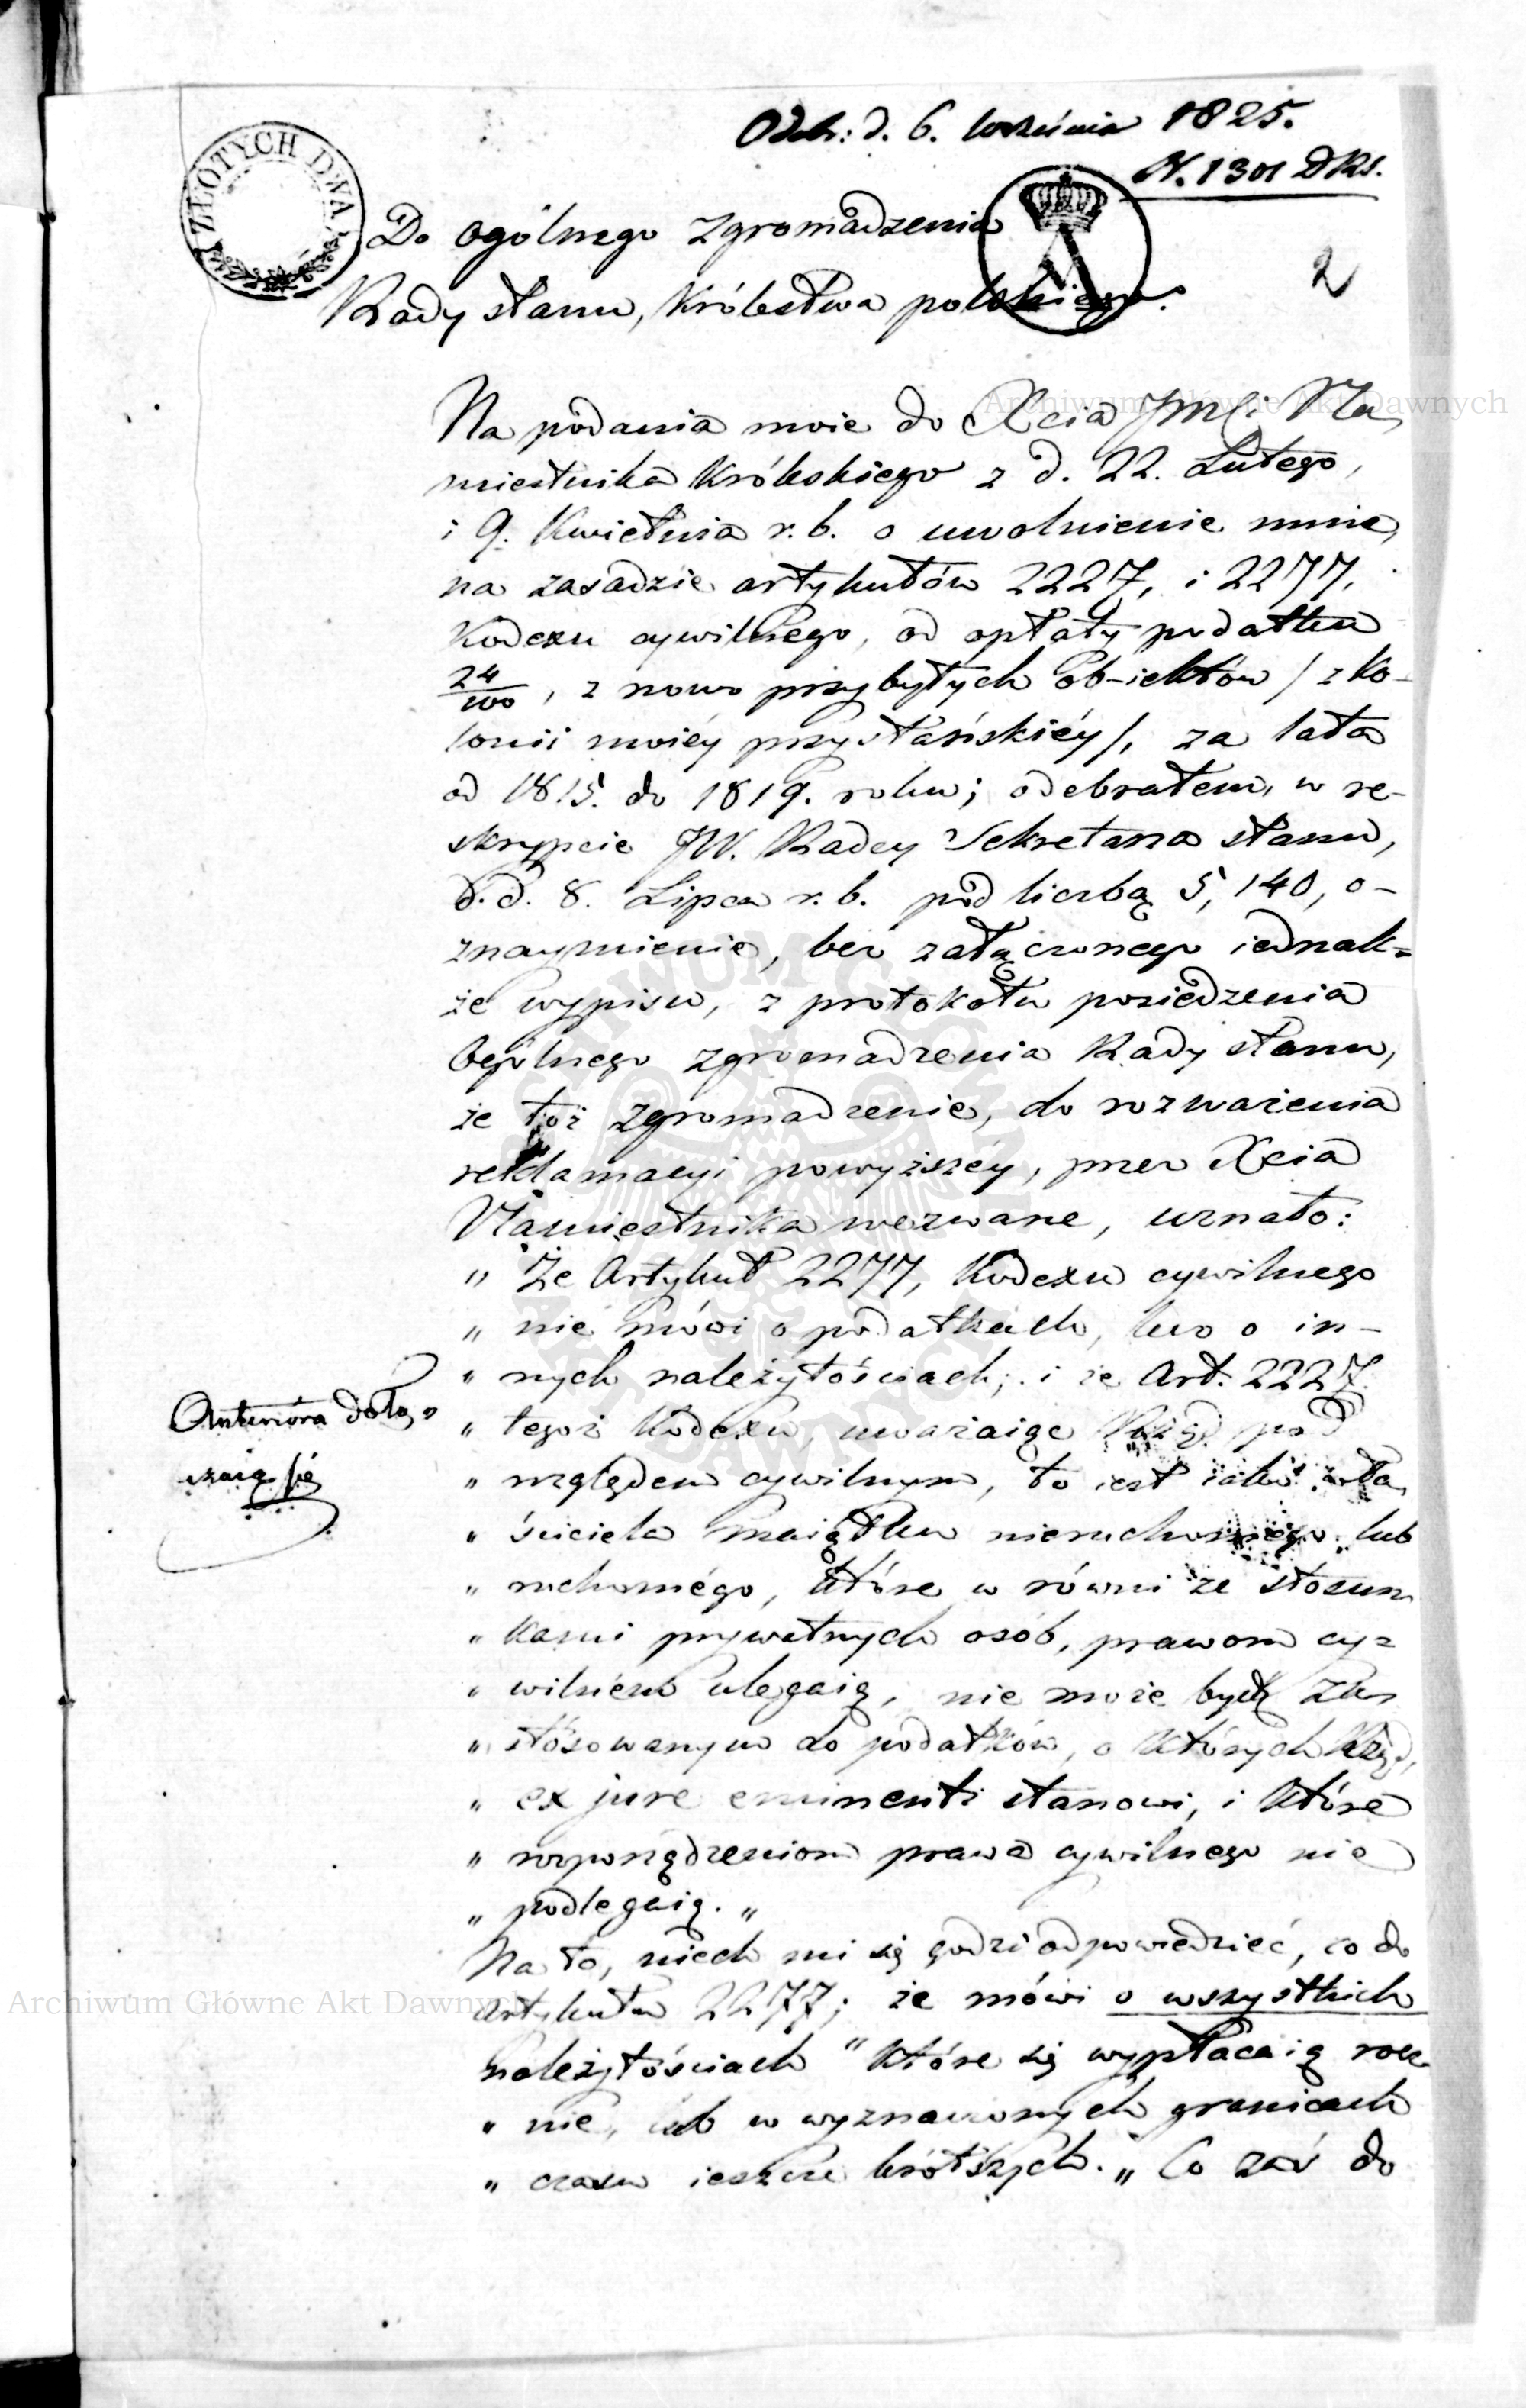 Odeb: d. 6. Września 1825.
N. 1301 DKs.
ZŁOTYCH DWA
2
Do ogólnego zgromadzenia
Rady stanu, Królestwa polskiego.
Na podania moie do Xcia JMści Na,
miestnika Królewskiego z d. 22. Lutego,
i 9. Kwietnia r. b. o uwolnienie mnie,
na zasadzie artykułów 2227, i 2277,
Kodexu cywilnego, od opłaty podatku
24/100, z nowo przybyłych ob-iektów / z ko-
lonii moiéy przystańskiéy /, za lata
od 1815. do 1819. roku; odebrałem, w re-
skrypcie JW. Radcy Sekretarza stanu,
d. d. 8. Lipca r. b. pod liczbą 5,140, o-
znaymienie, bez załączonego iednak=
że wypisu, z protokołu posiedzenia
Ogólnego zgromadzenia Rady stanu,
że toż zgromadzenie, do rozważenia
reklamacyi powyższéy, przez Xcia
Namiestnika wezwane, uznało:
„ Że Artykuł 2277, Kodexu cywilnego
„ nie mówi o podatkach, lecz o in-
„ nych należytościach; i że Art. 2227.
„ tegoż Kodexu, uważaiąc Rząd pod
„ względem cywilnym, to iest iako wła,
„ ściciela maiątku nieruchomego lub
„ ruchomégo, które w równi ze stosun
„ kami prywatnych osób, prawom cy=
„ wilném ulegaią, nie może być za,
„ stósowanym do podatków, o których Rząd,
„ ex jure eminenti stanowi, i które
„ rozporządzeniom prawa cywilnego nie
„ podlegaią. „
Anteriora dołą,
czaią się
Na to, niech mi się godzi odpowiedzieć, co do
artykułu 2277; że mówi o wszystkich
należytościach "które się wypłacaią rocz
„ nie, lub w wyznaczonych granicach
„ czasu ieszcze krótszych. „ Co zaś do
Archiwum Główne Akt Dawnych
Archiwum Główne Akt Dawnych
ARCHIWUM GŁÓWNE AKT DAWNYCH